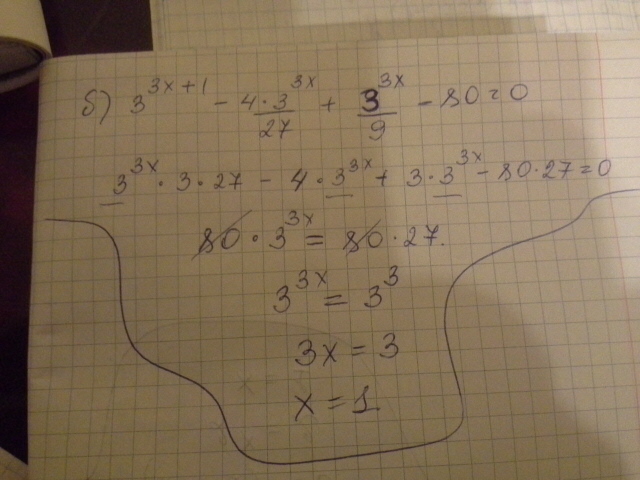 б) 3^(3x+1) - (4·3^(3x))/27 + 3^(3x)/9 - 80 = 0
3^(3x)·3·27 - 4·3^(3x) + 3·3^(3x) - 80·27 = 0
80·3^(3x) = 80·27.
3^(3x) = 3^3
3x = 3
x = 1